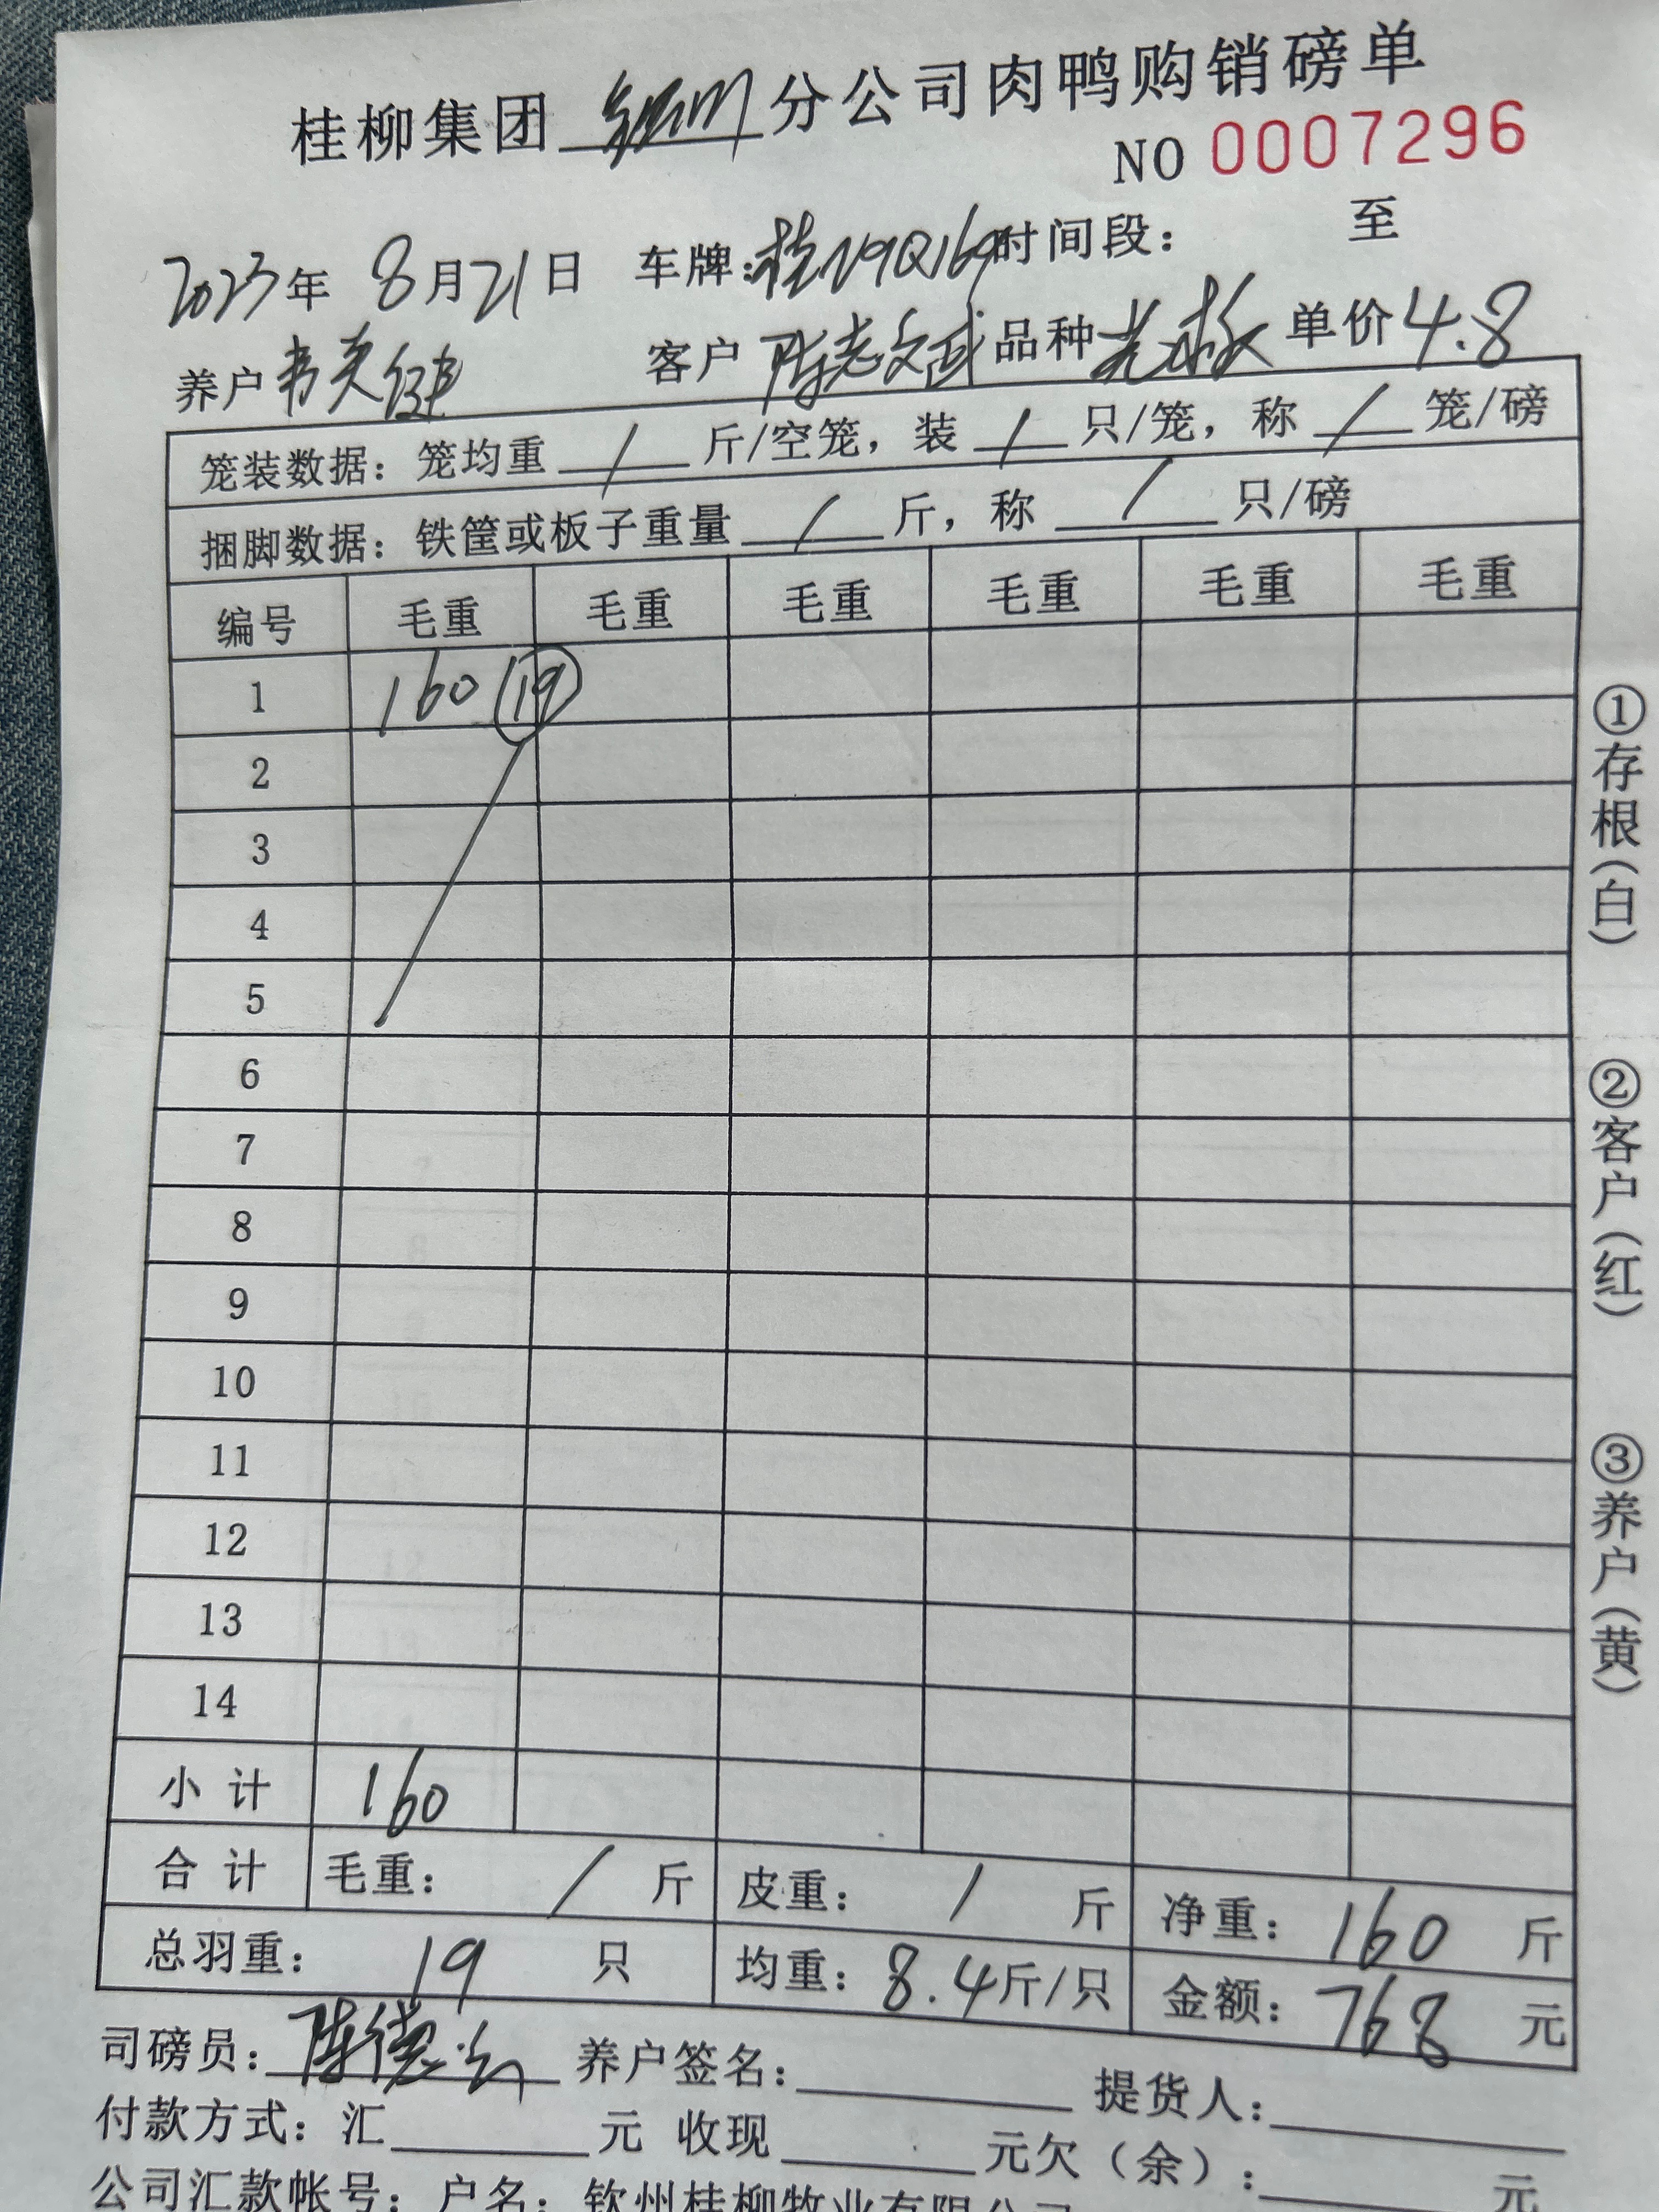 桂柳集团 钦州 分公司肉鸭购销磅单
NO 0007296
2023年 8月21日 车牌:桂N9Q169 时间段: 至
养户 韦 健 客户 陈志文 品种 单价 4.8
笼装数据: 笼均重 / 斤/空笼, 装 / 只/笼, 称 / 笼/磅
捆脚数据: 铁筐或板子重量 / 斤, 称 / 只/磅
编号 毛重 毛重 毛重 毛重 毛重 毛重
1 160 (19)
2
3
4
5
6
7
8
9
10
11
12
13
14
小计 160
合计 毛重: / 斤 皮重: / 斤 净重: 160 斤
总羽重: 19 只 均重: 8.4斤/只 金额: 768 元
司磅员: 陈德 养户签名: 提货人:
付款方式: 汇 元 收现 元欠(余): 元
公司汇款帐号: 户名: 钦州桂柳牧业有限公司
①存根(白)
②客户(红)
③养户(黄)